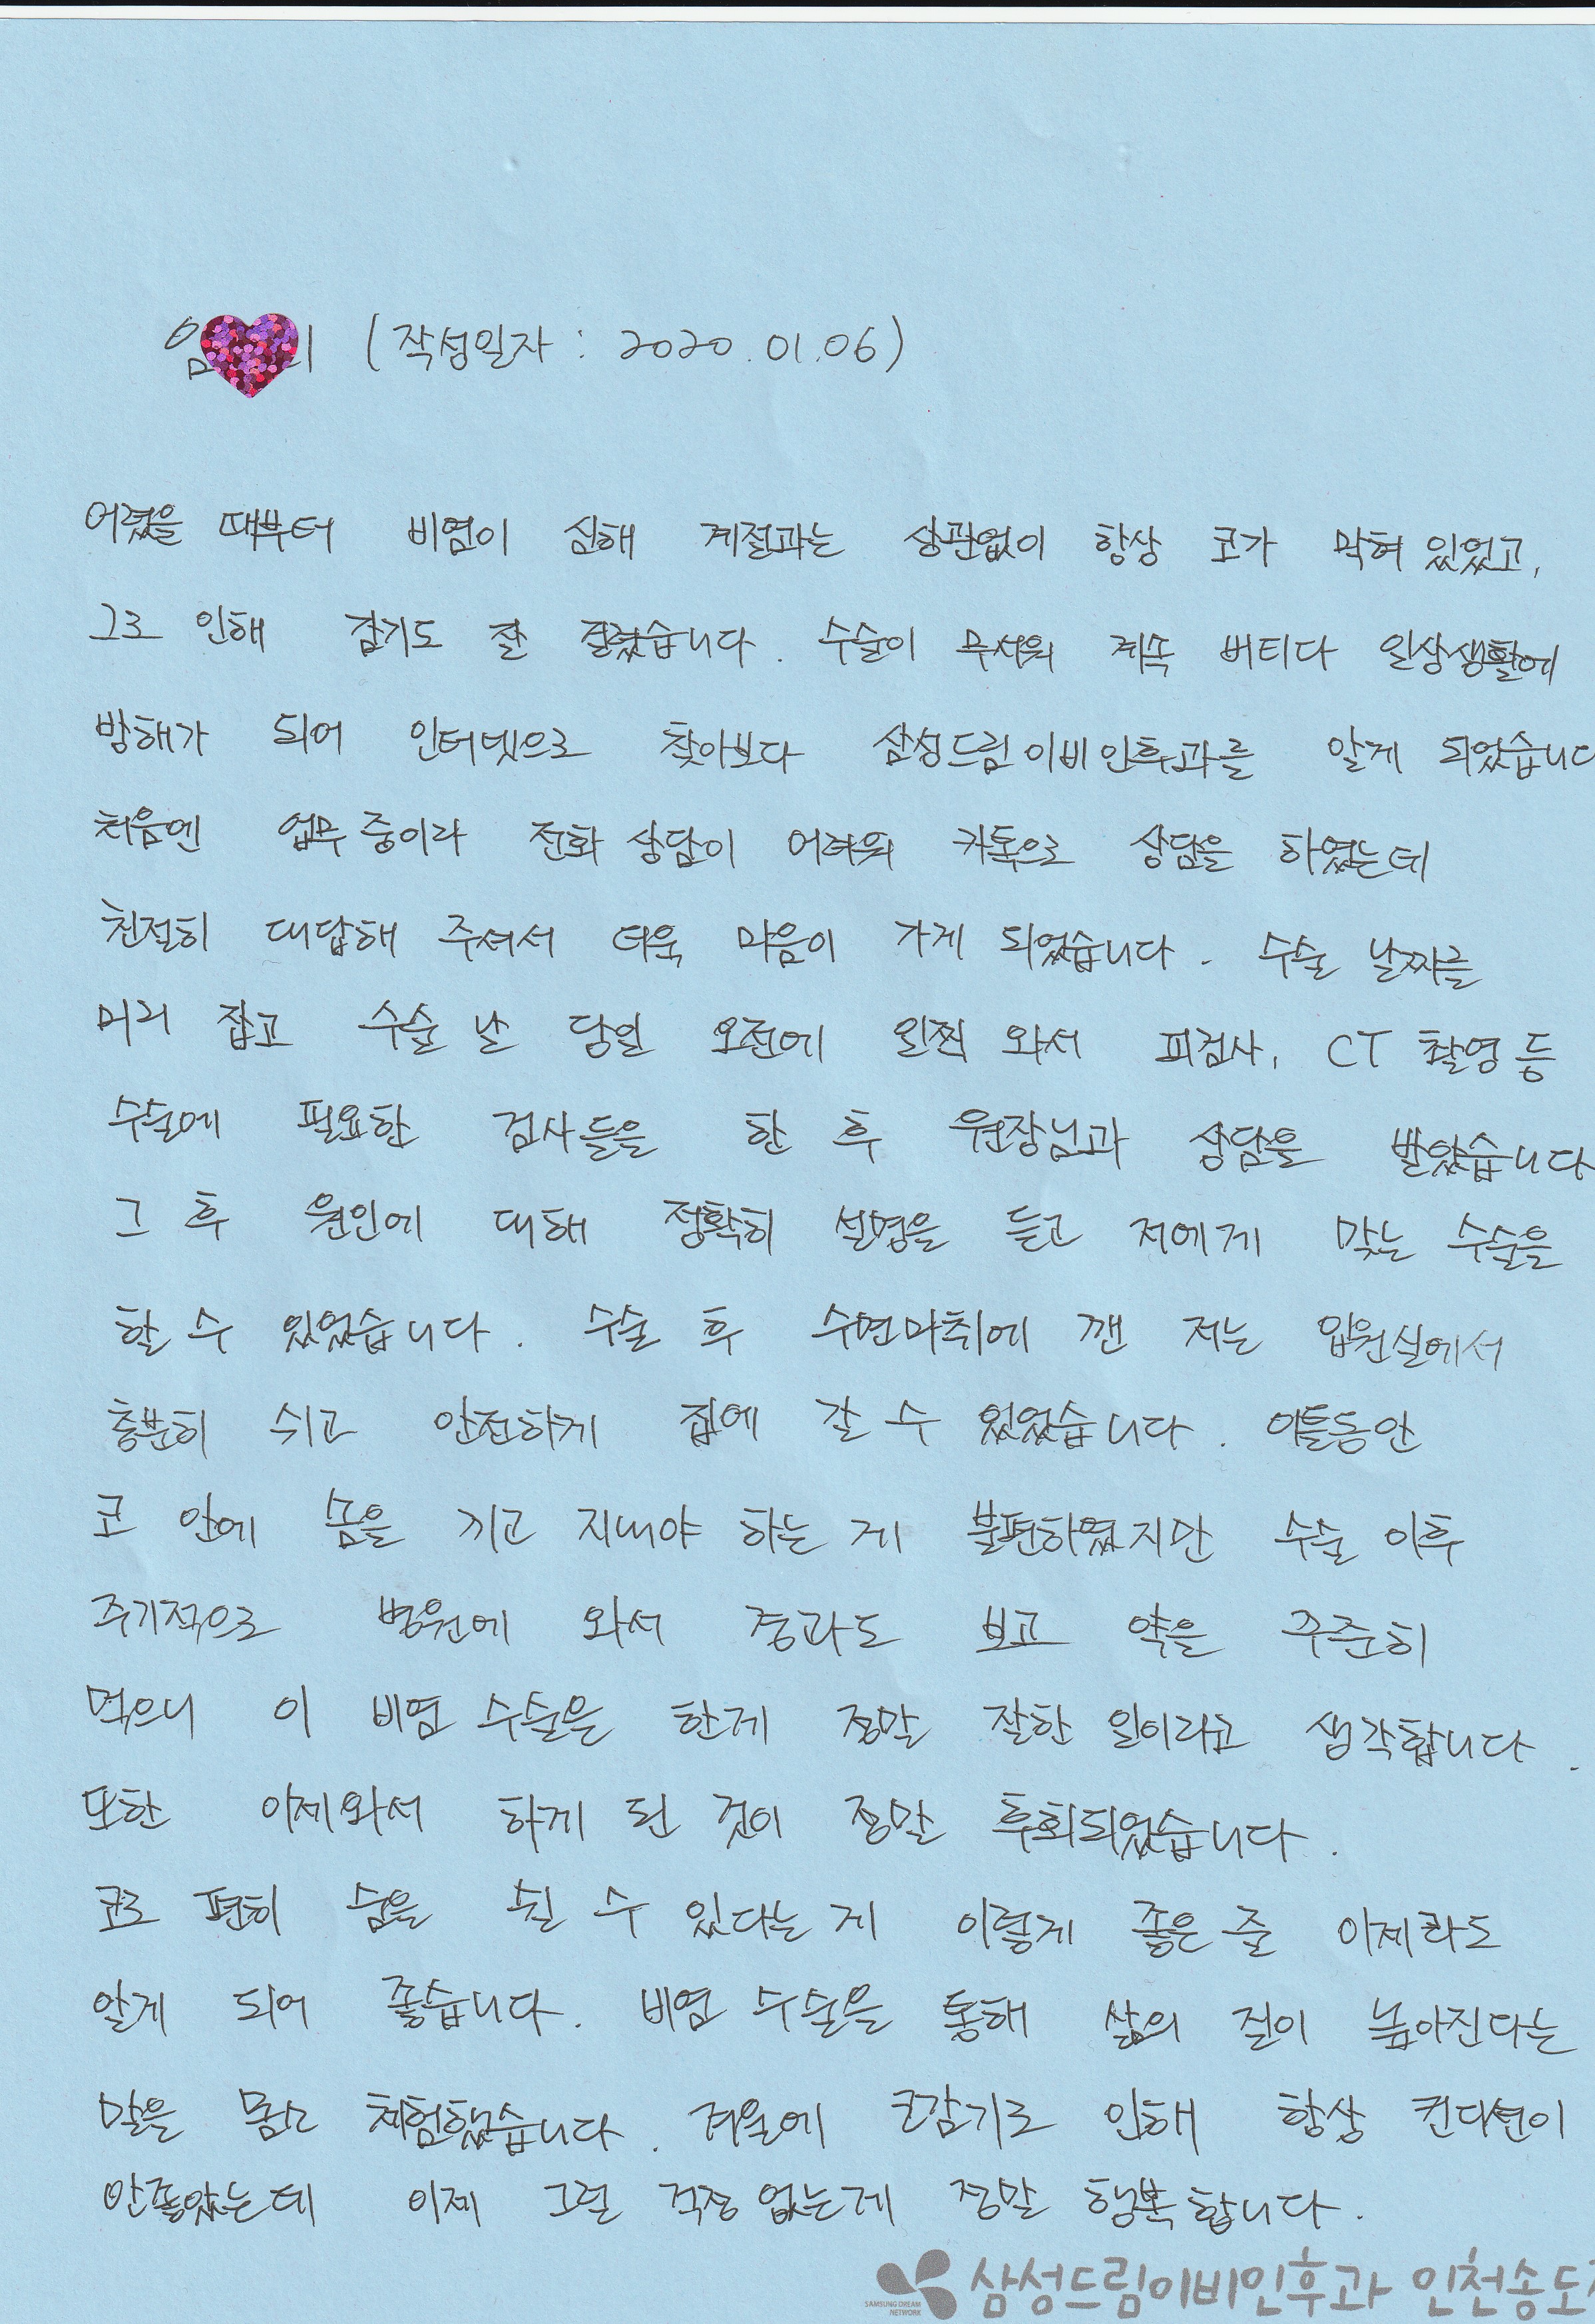 임 (작성일자 : 2020.01.06)
어렸을 때부터 비염이 심해 계절과는 상관없이 항상 코가 막혀 있었고,
그로 인해 감기도 잘 걸렸습니다. 수술이 무서워 계속 버티다 일상생활에
방해가 되어 인터넷으로 찾아보다 삼성드림이비인후과를 알게 되었습니다
처음엔 업무 중이라 전화 상담이 어려워 카톡으로 상담을 하였는데
친절히 대답해 주셔서 더욱 마음이 가게 되었습니다. 수술 날짜를
미리 잡고 수술 날 당일 오전에 일찍 와서 피검사, CT 촬영 등
수술에 필요한 검사들을 한 후 원장님과 상담을 받았습니다
그 후 원인에 대해 정확히 설명을 듣고 저에게 맞는 수술을
할 수 있었습니다. 수술 후 수면마취에 깬 저는 입원실에서
충분히 쉬고 안전하게 집에 갈 수 있었습니다. 이틀동안
코 안에 솜을 끼고 지내야 하는 게 불편하였지만 수술 이후
주기적으로 병원에 와서 경과도 보고 약을 꾸준히
먹으니 이 비염 수술을 한게 정말 잘한 일이라고 생각합니다.
또한 이제와서 하게 된 것이 정말 후회되었습니다.
코로 편히 숨을 쉴 수 있다는 게 이렇게 좋은 줄 이제라도
알게 되어 좋습니다. 비염 수술을 통해 삶의 질이 높아진다는
말을 몸소 체험했습니다. 겨울에 코감기로 인해 항상 컨디션이
안좋았는데 이제 그럴 걱정 없는게 정말 행복합니다.
삼성드림이비인후과 인천송도
SAMSUNG DREAM
NETWORK